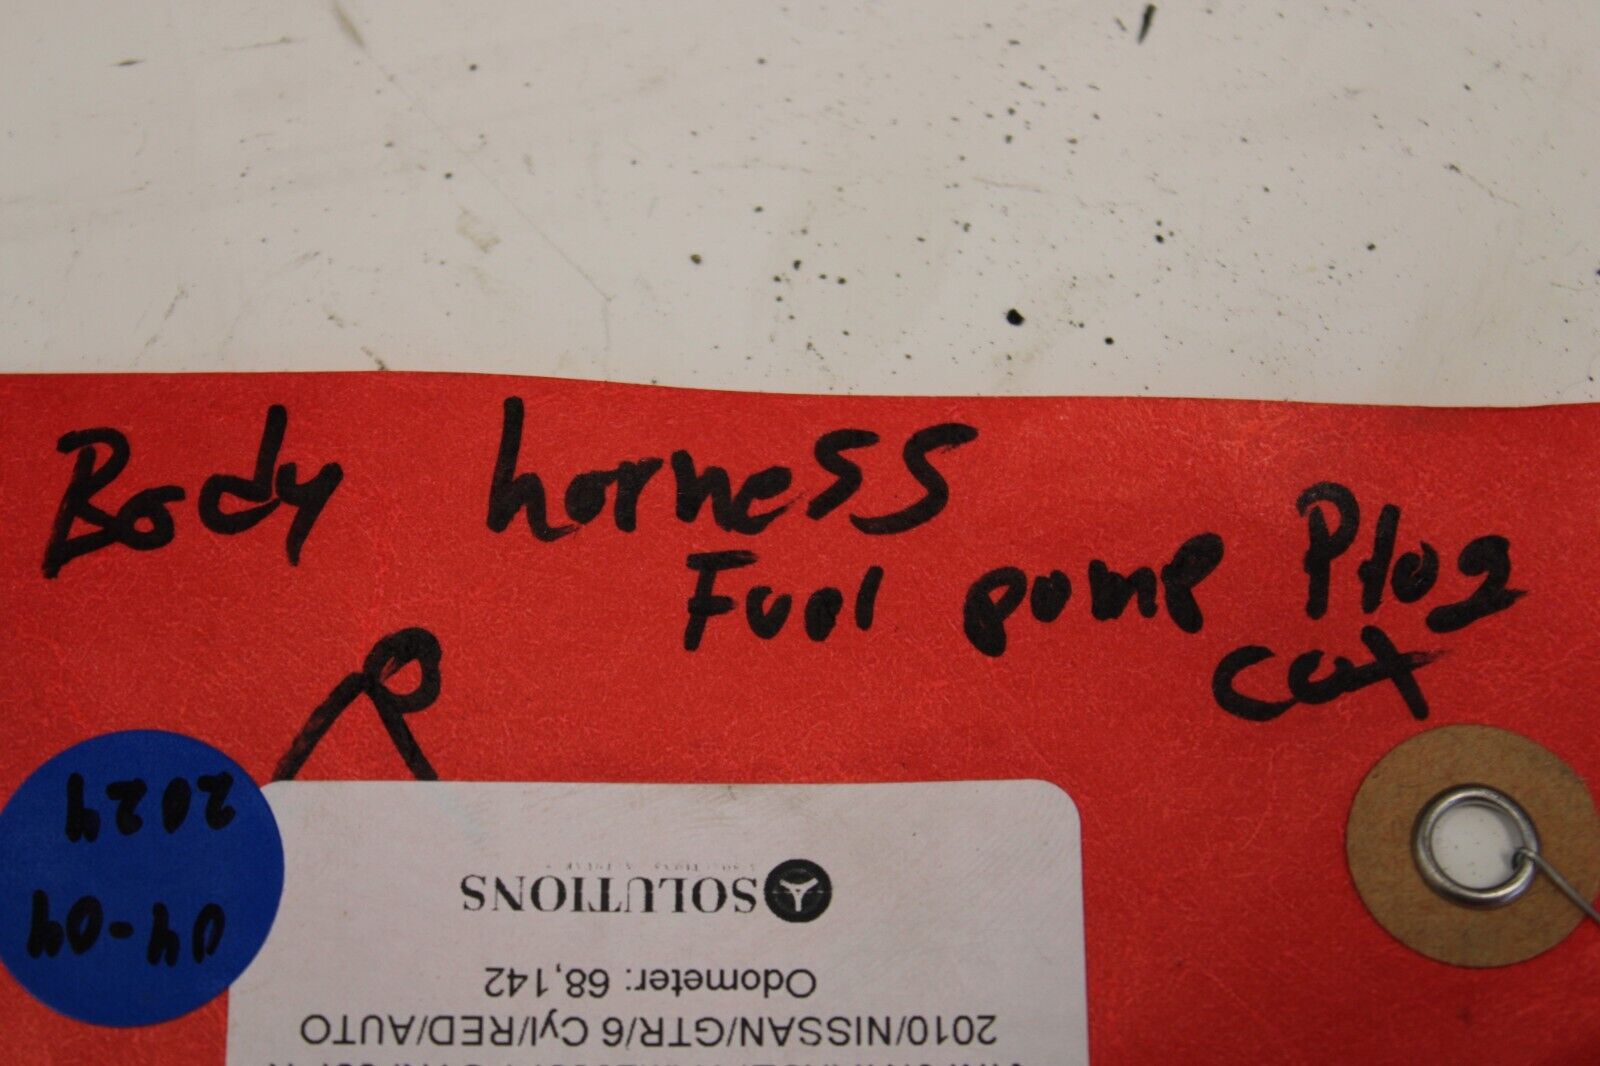 Body horness
Fuel pump Plog
cut
R
04-04
2024
SOLUTIONS
Odometer: 68,142
2010/NISSAN/GTR/6 Cyl/RED/AUTO